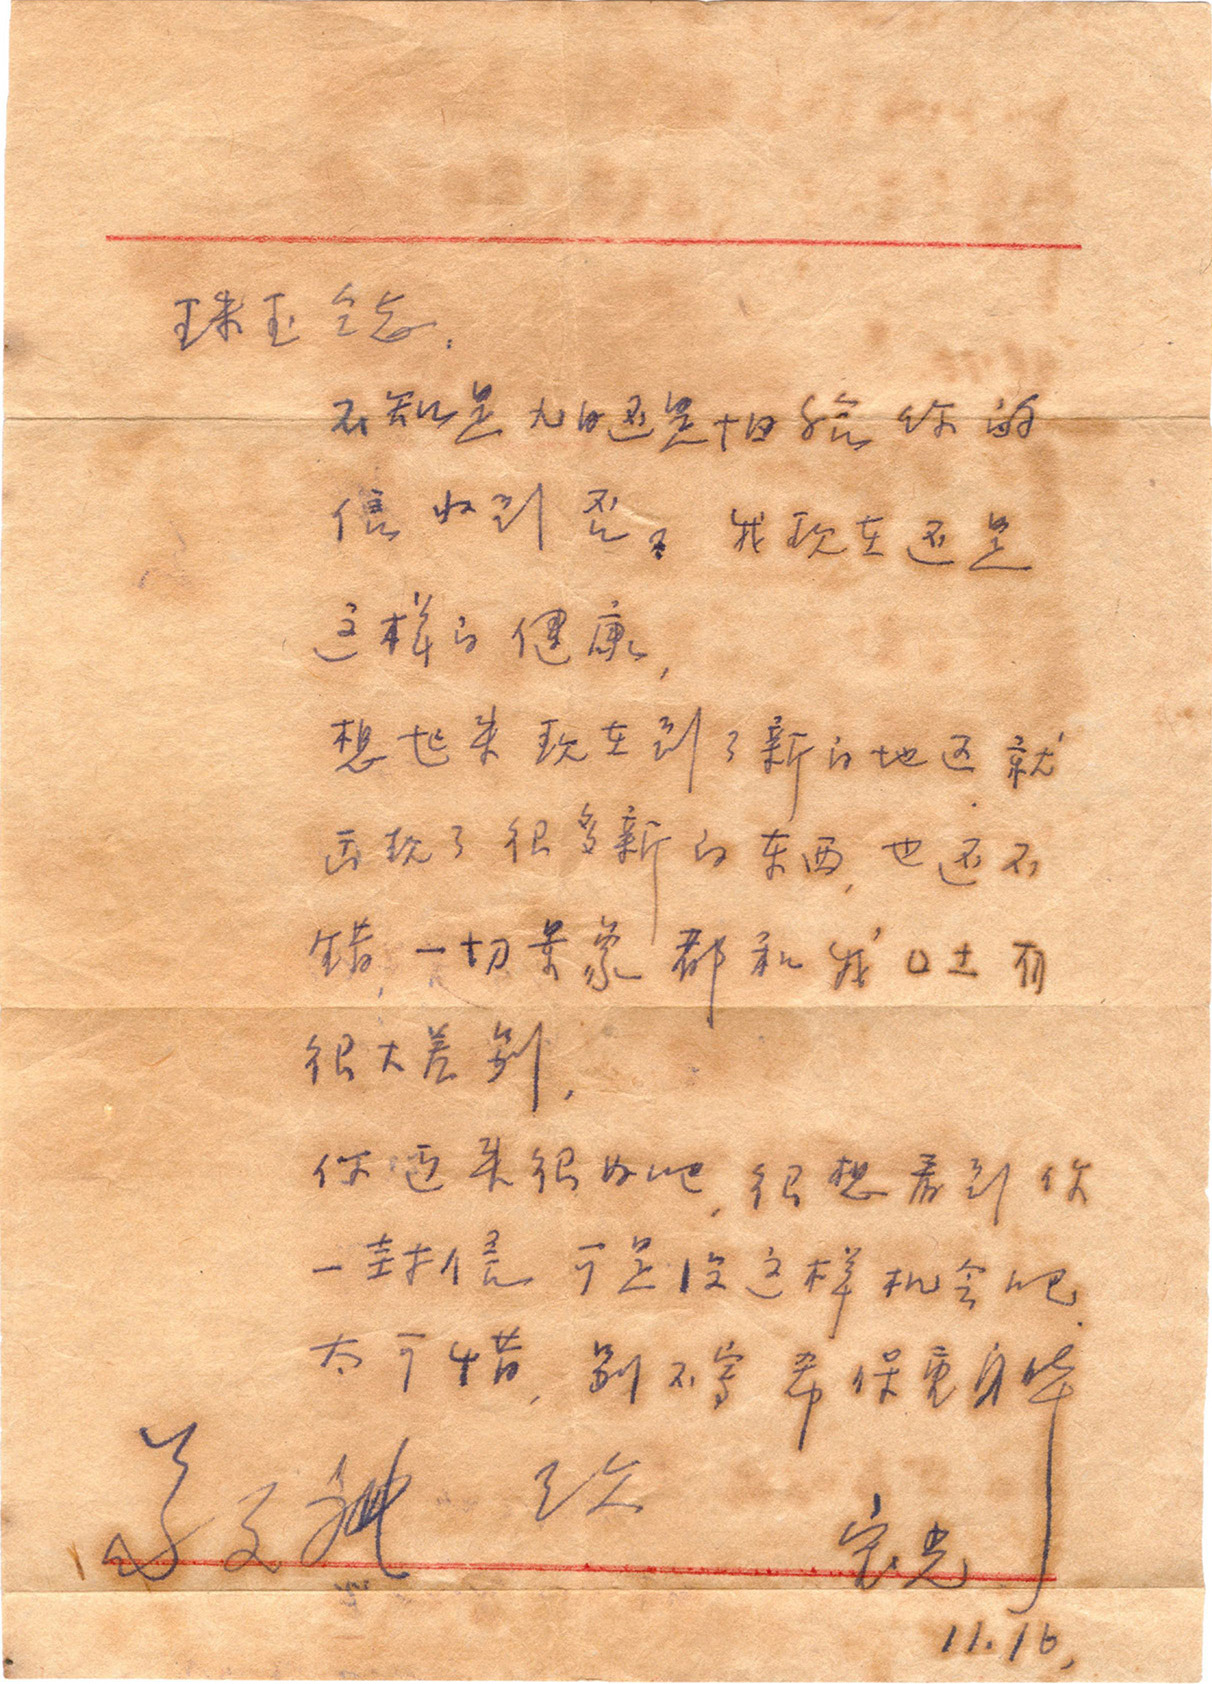 珠玉
不知是九日还是十日给你的
信收到否。我现在还是
这样的健康,
想起来现在到了新的地区就
出现了很多新的东西,也还不
错,一切景象都和我口土有
很大差别.
你近来很好吧,很想看到你
一封信 可是没这样机会吧.
太可惜,别不写 希保重身体
宗光
11.16,